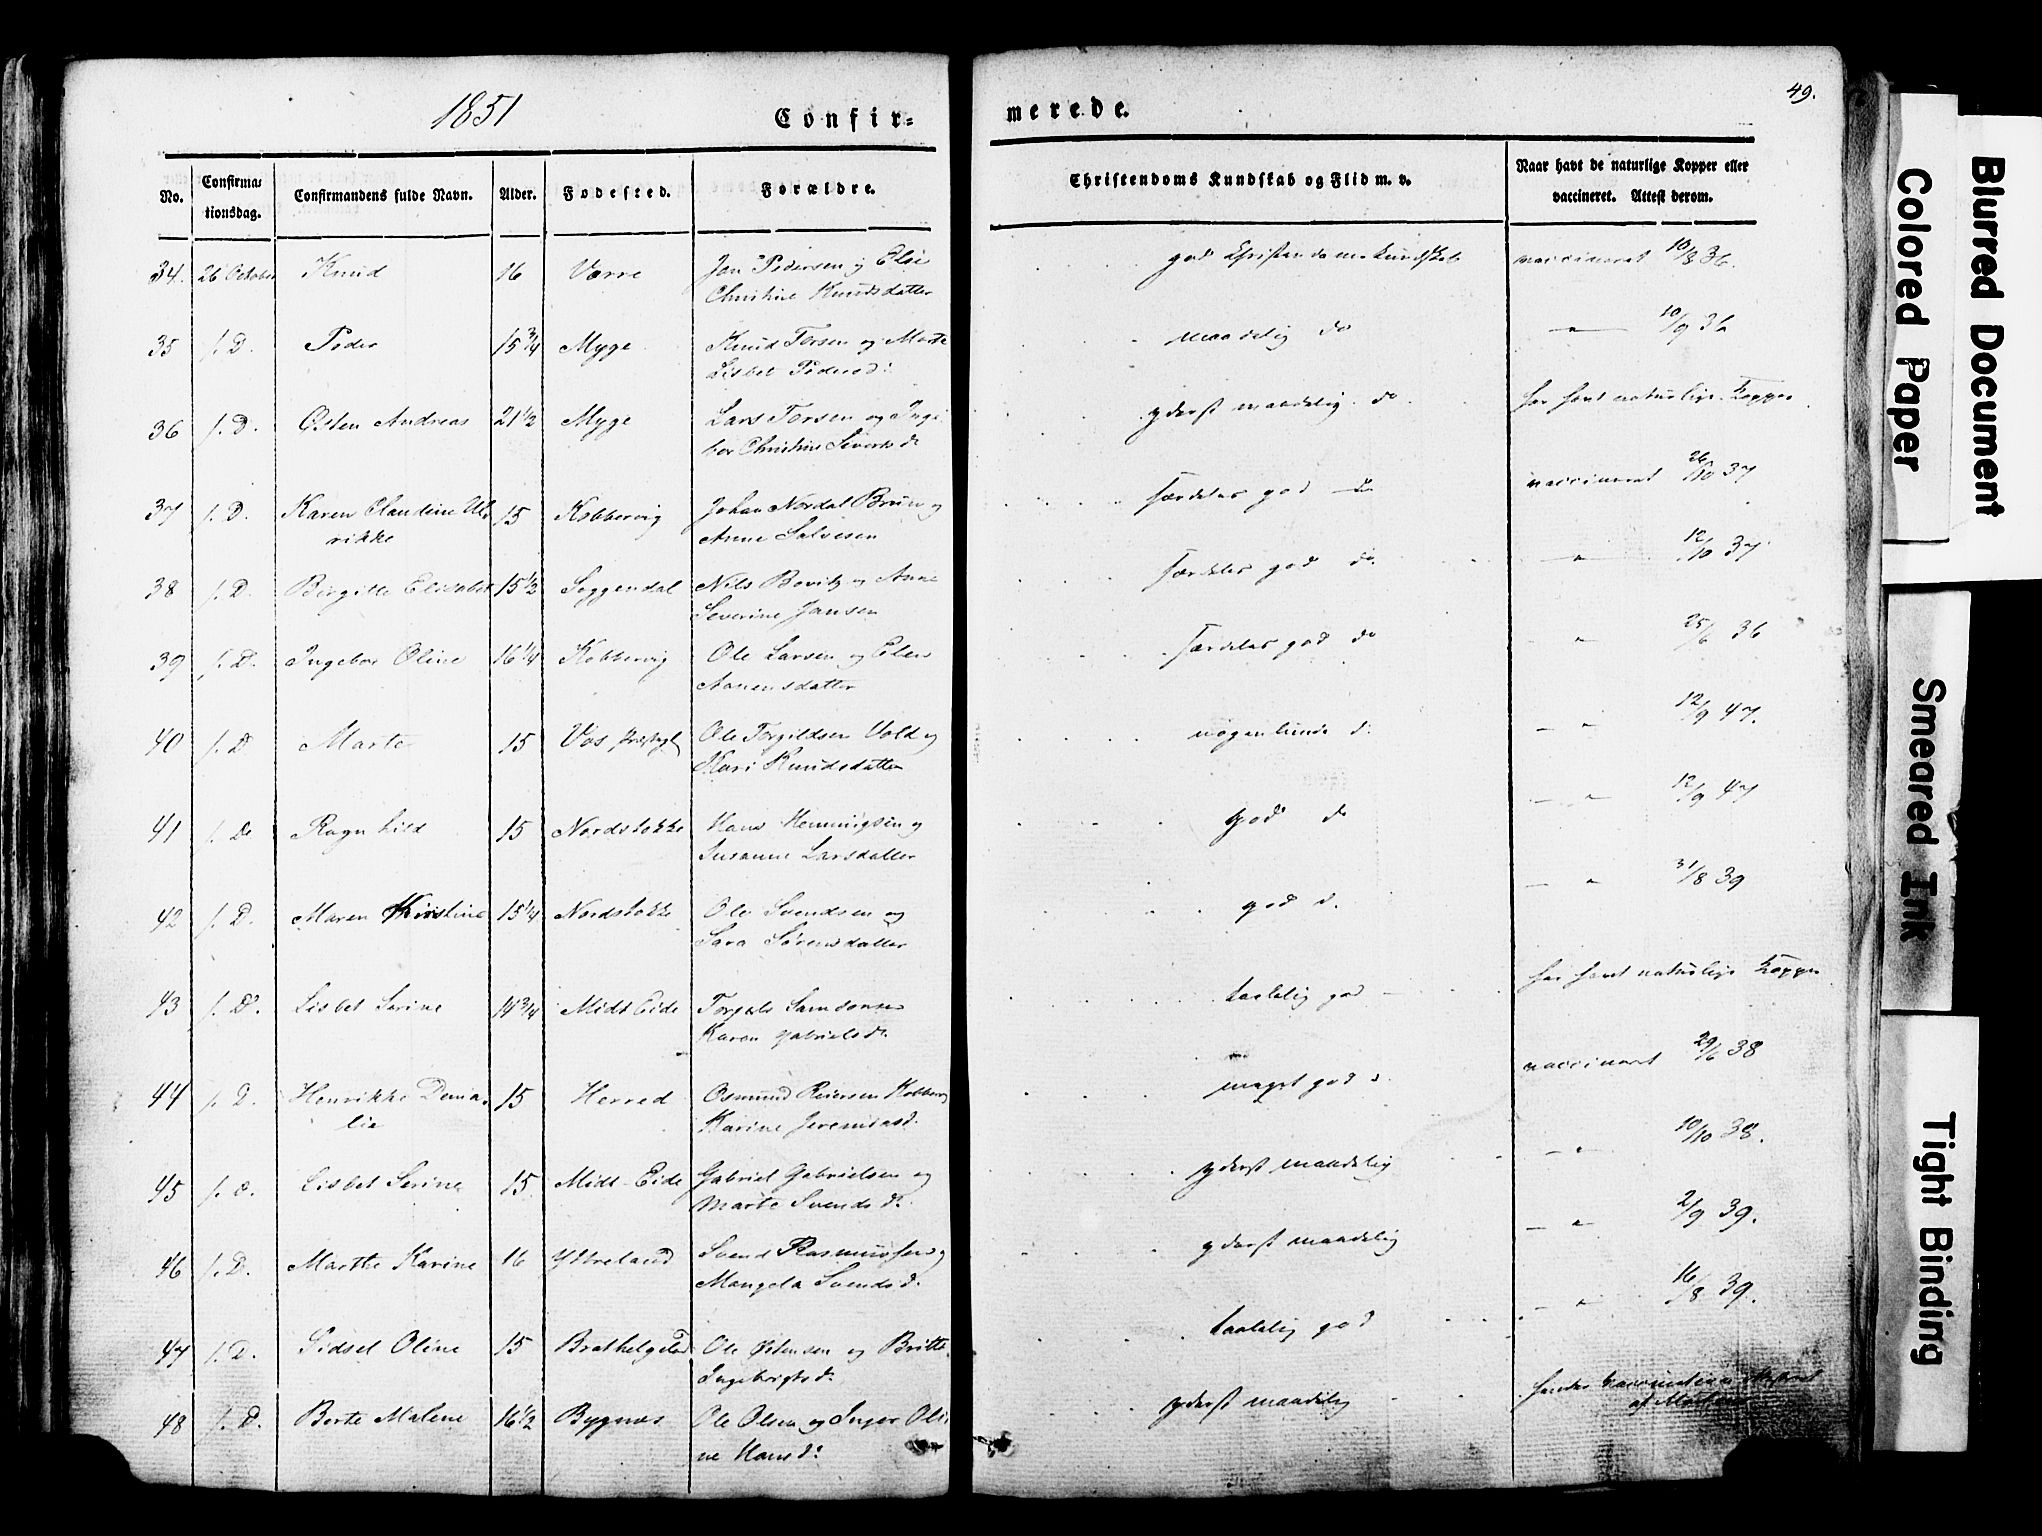 1851
Confir-
merede.
49.
No.
Confirma-
tionsdag.
Confirmandens fulde Navn.
Alder.
Fødested.
Forældre.
Christendoms Kundskab og Flid m. v.
Naar havt de naturlige Kopper eller
vaccineret. Attest derom.
34. 26 October Knud 16 Værre Jan Pedersen og Elsi god Christendomskundskab vaccineret 10/8 36.
Christine Knudsdatter
35 s. D. Peder 15 3/4 Myge Knud Torsen og Marte maadelig do — " — 10/9 36
Lisbet Pedersd:
36 s. D. Østen Andreas 21 1/2 Myge Lars Torsen og Inge- yderst maadelig do. har havt naturlige Kopper
bor Christine Siverts d:
37 s. D. Karen Claudine Ul- 15 Kobbervig Johan Nordal Brun og særdeles god do vaccineret 26/10 37
rikke Anne Salvesen
38 s. D. Birgitte Elisabet 15 1/2 Soggendal Nils Bovitz og Anne særdeles god do. — " — 12/10 37
Severine Jansen
39 s. D. Ingebor Oline 16 1/4 Kobbervig Ole Larsen og Elen særdeles god do — " — 25/6 36
Aanensdatter
40 s. D Marte 15 Vos Ole Torgildsen Vold og nogenlunde d: — " — 12/9 47.
Kari Knudsdatter
41 s. D. Ragnhild 15 Nordstokke Hans Henningsen og god do — " — 12/9 47
Susanne Larsdatter
42 s. D. Maren Kirstine 15 1/4 Nordstokke Ole Svendsen og god d. — " — 31/8 39
Sara Sørensdatter
43 s. D. Lisbet Serine 14 3/4 Midt Eide Torgels taalelig god har havt naturlige Kopper
Karen Gabrielsd:
44 s. D. Henrikke Dema- 15 Herred Osmund Reiersen meget god d. vaccineret 29/6 38
lia Karine Jeremiasd.
45 s. D. Lisbet Serine 15 Midt-Eide Gabriel Gabrielsen og yderst maadelig — " — 10/10 38.
Marte Svends d:
46 s. D. Marthe Karine 16 Ydtreland Svend Rasmussen og yderst maadelig — " — 2/9 39.
Mangela Svends d:
47 s. D. Sidsel Oline 15 Brathelgeland Ole Østensen og Britte taalelig god — " — 16/8 39.
Ingebrigts d:
48 s. D. Berte Malene 16 1/2 Bygnes Ole Olsen og Inger Oli- yderst maadelig
ne Hans d:
Blurred Document
Colored Paper
Smeared Ink
Tight Binding